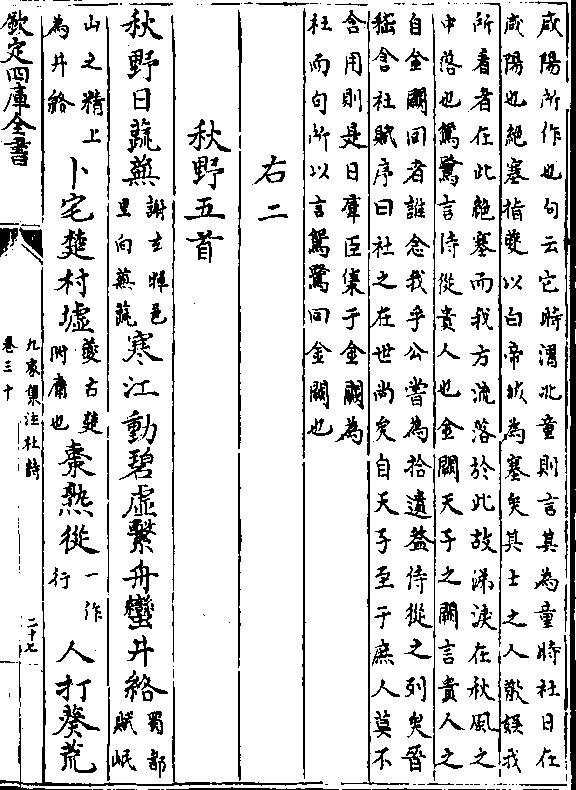 咸陽所作也句云它時渭北童則言其為童時社日在
咸陽也絶塞指夔以白帝城為塞矣其士之人歡娱我
所看者在此絶塞而我方流落於此故涕淚在秋風之
中落也鴛鷺言侍從貴人也金闕天子之闕言貴人之
自金闕回者誰念我乎公嘗為拾遺葢侍從之列矣晉
嵇含社賦序曰社之在世尚矣自天子至于庶人莫不
含用則是日羣臣集于金闕為
社而句所以言鴛鷺回金闕也
右二
秋野五首
秋野日蔬蕪謝玄暉邑里向蕪蔬寒江動碧虛繫舟蠻井絡蜀都賦岷
山之精上為井絡卜宅楚村墟夔古楚附庸也棗熟從一作行人打葵荒
欽定四庫全書
九家集注杜詩
卷三十
二十七